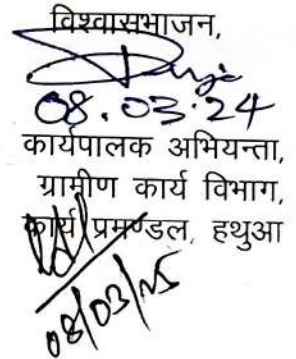 विश्वासभाजन,
08.03.24
कार्यपालक अभियन्ता,
ग्रामीण कार्य विभाग,
कार्य प्रमण्डल, हथुआ
08/03/25